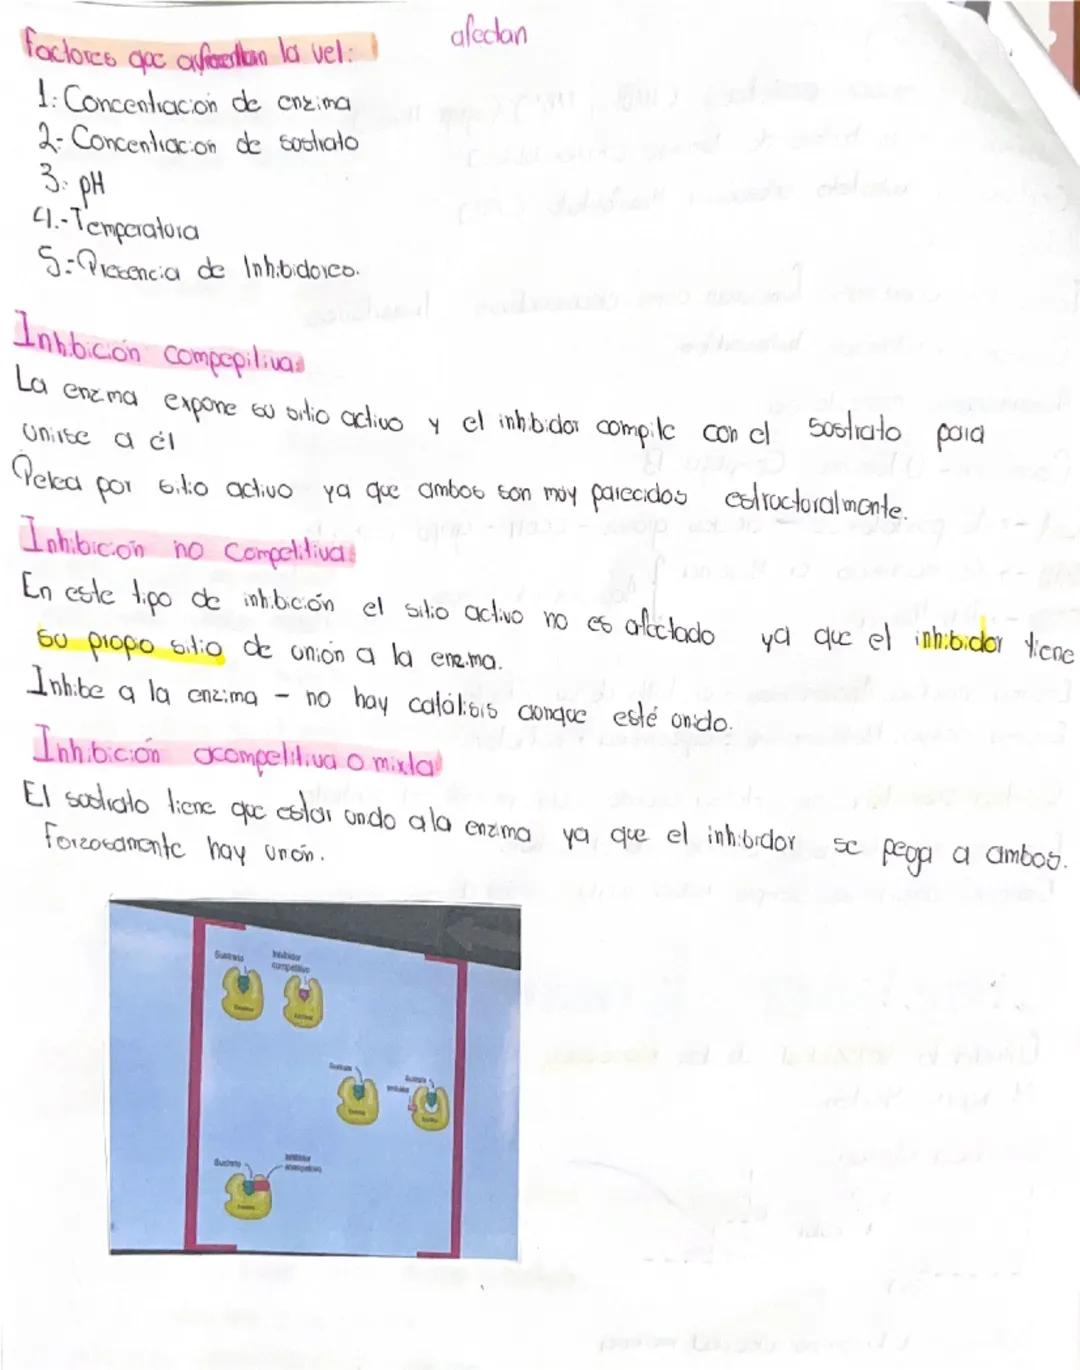 afectan
Factores que afectan la vel:
1: Concentracion de enzima
2- Concentracion de sustrato
3. pH
4.- Temperatura
5.- Presencia de Inhibidores.
Inhbición compepitiva:
La enzima expone su sitio activo y el inhbidor compite con el sustrato para
unirse a él
Pelea por sitio activo ya que ambos son muy parecidos estructuralmente.
Inhibición no Competitiva:
En este tipo de inhibición el sitio activo no es afectado ya que el inhibidor tiene
su propio sitio de unión a la enzima.
Inhibe a la enzima - no hay catálisis aunque esté unido.
Inhibición acompetitiva o mixta
El sustrato tiene que estar unido a la enzima ya que el inhibidor se pega a ambos.
Forzosamente hay unión.
Sustrato
Inhibidor
competitivo
Enzima
Enzima
Sustrato
Sustrato
Inhibidor
Enzima
Enzima
Sustrato
Inhibidor
acompetitivo
Enzima